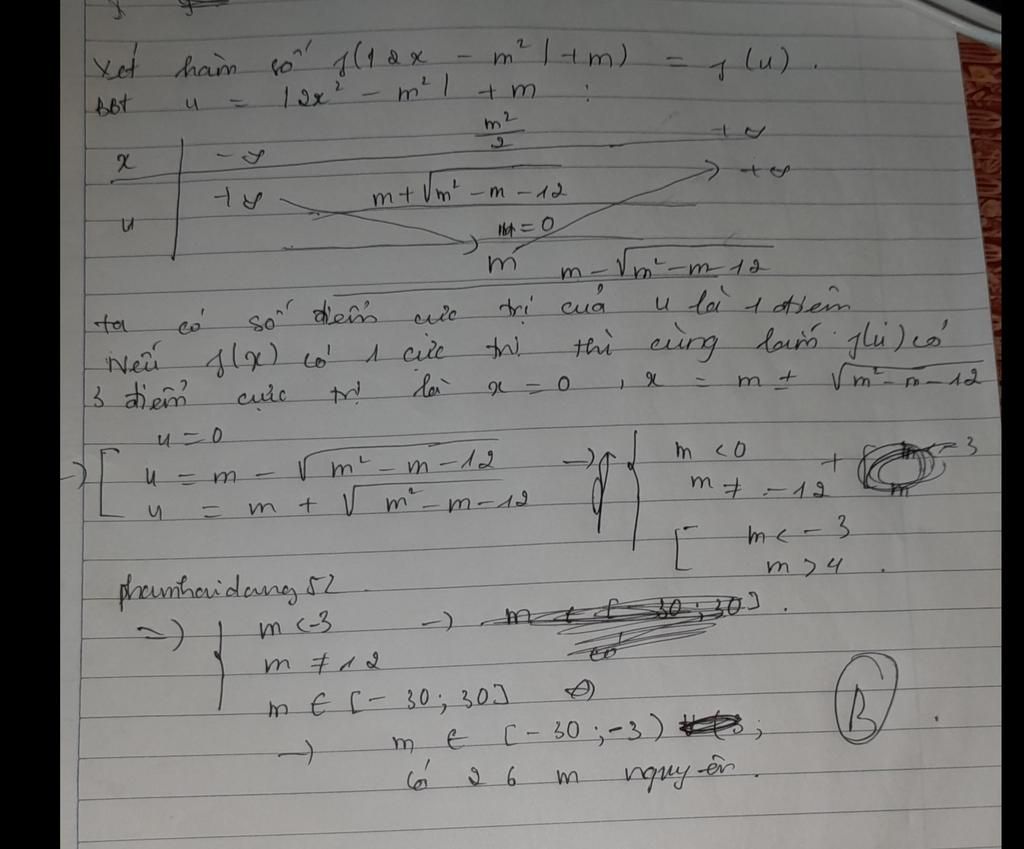 Xét hàm số f(|2x - m²| + m) = f(u).
BBT u = |2x² - m²| + m :
x | -∞ m²/2 +∞
+∞ m + √(m² - m - 12) +∞
u = 0
m m - √(m² - m - 12)
ta có số điểm cực trị của u là 1 điểm
Nếu f(x) có 1 cực trị thì cùng lắm f(u) có
3 điểm cực trị là x = 0, x = m ± √(m² - m - 12)
u = 0
→ [ u = m - √(m² - m - 12) → { m < 0 +
u = m + √(m² - m - 12) m ≠ -12
[ m < -3
m > 4 .
phamhaidang52
=> { m < -3 →
m ≠ 12
m ∈ [-30; 30]
→ m ∈ [-30; -3) ;
có 26 m nguyên.
B